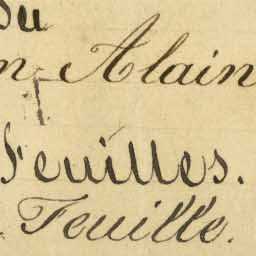 du
n Alain
Feuilles.
Feuille.